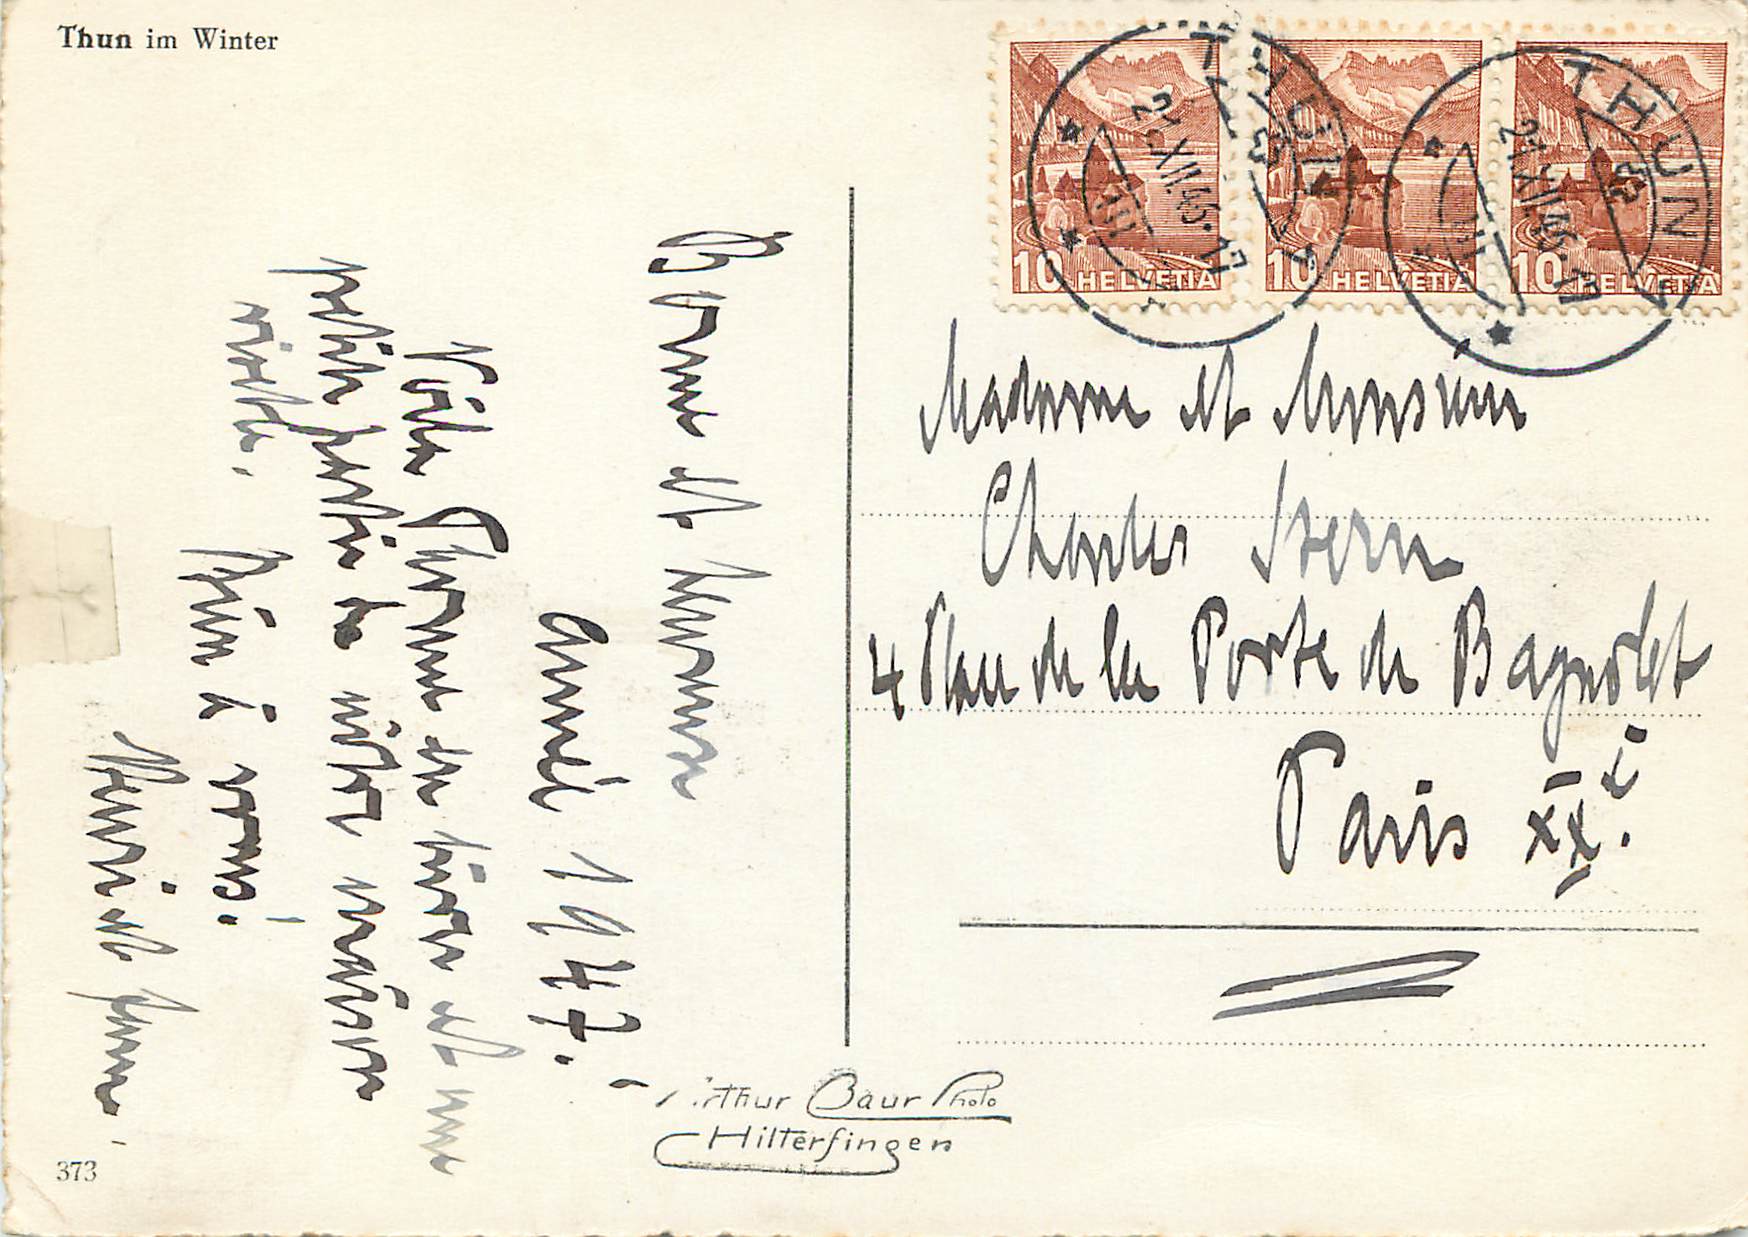 Thun im Winter
10 HELVETIA
10 HELVETIA
10 HELVETIA
THUN
21.XII.46-17
THUN
21.XII.46-17
Bonne et heureuse
année 1947.
Voilà Thoune en hiver et une
petite partie de notre maison
visible. Bien à vous.
Henri et
Madame et Monsieur
Charles Stern
4 Place de la Porte de Bagnolet
Paris XXe.
Arthur Baur Photo
Hilterfingen
373